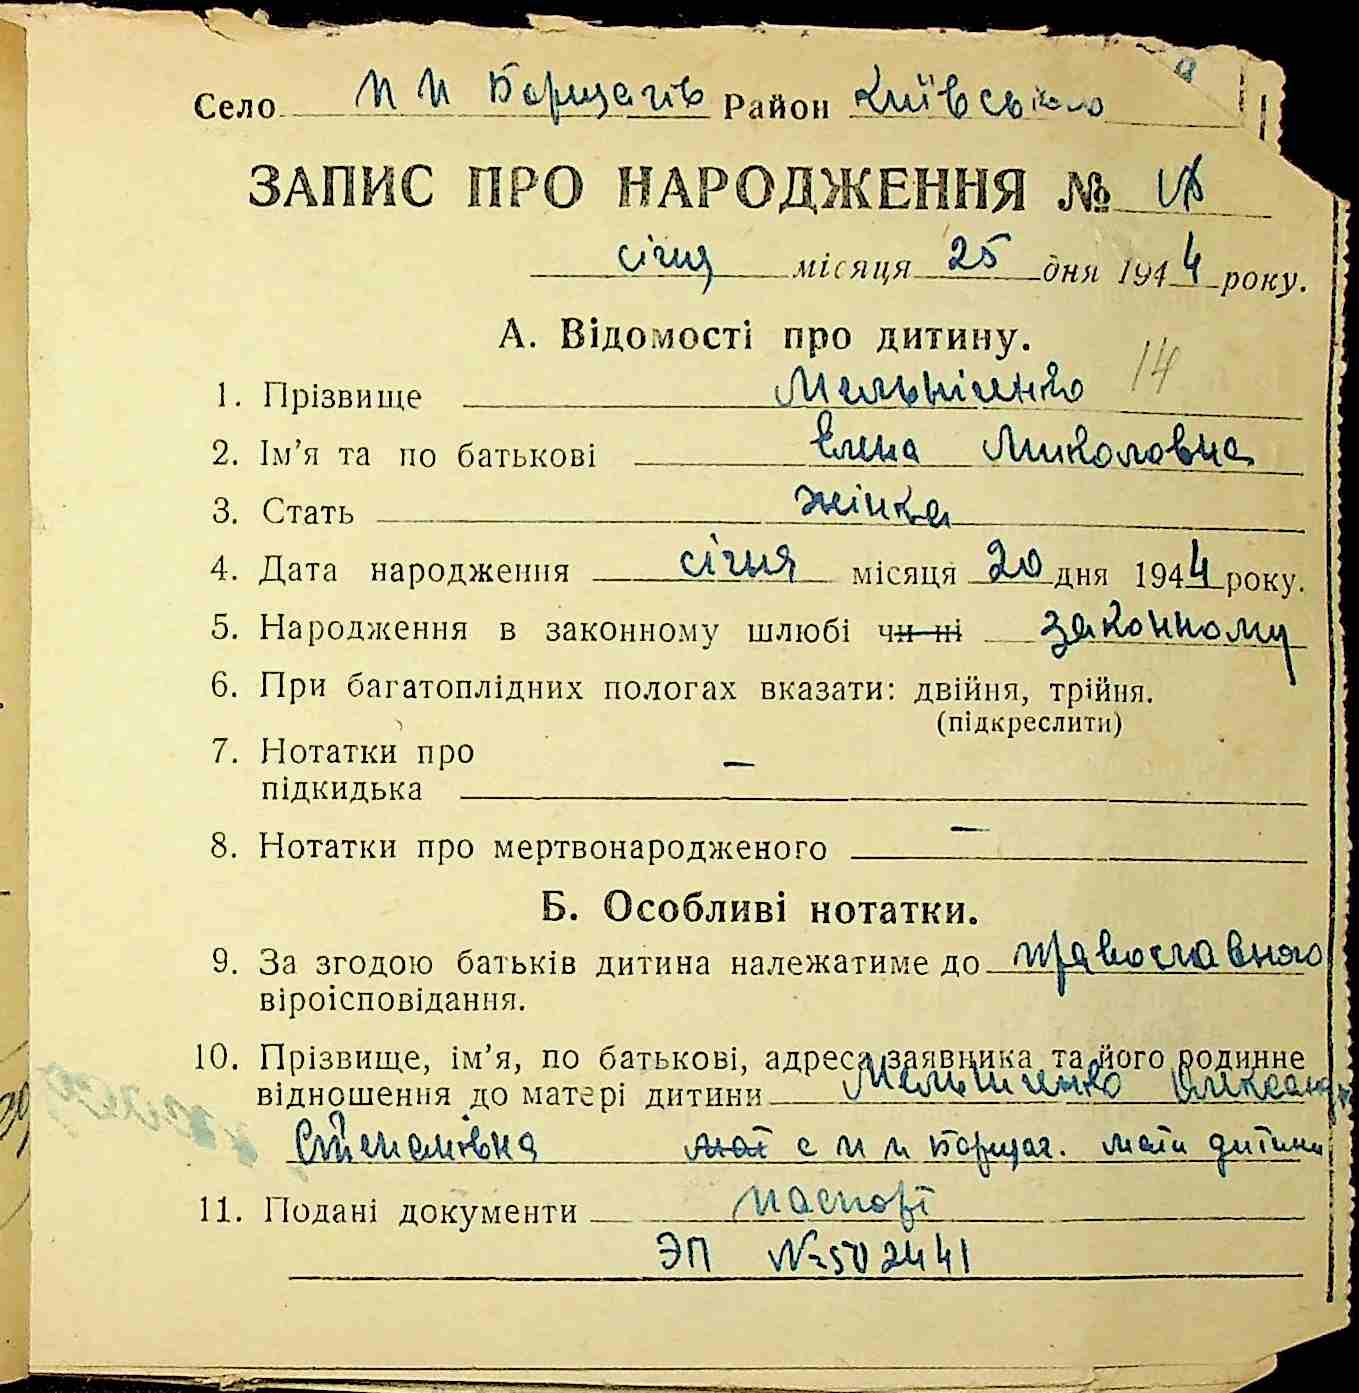 Село П П Борщагів Район Київського
ЗАПИС ПРО НАРОДЖЕННЯ №
січня місяця 25 дня 1944 року.
А. Відомості про дитину.
14
1. Прізвище Мельніченко
2. Ім'я та по батькові Елена Миколовна
3. Стать жінка
4. Дата народження січня місяця 20 дня 1944 року.
5. Народження в законному шлюбі чи ні законному
6. При багатоплідних пологах вказати: двійня, трійня.
(підкреслити)
7. Нотатки про
підкидька —
8. Нотатки про мертвонародженого —
Б. Особливі нотатки.
9. За згодою батьків дитина належатиме до православного
віроісповідання.
10. Прізвище, ім'я, по батькові, адреса заявника та його родинне
відношення до матері дитини Мельниченко Олександ
Степанівна мат с П П Борщаг. мати дитини
11. Подані документи паспорт
ЭП № 502441